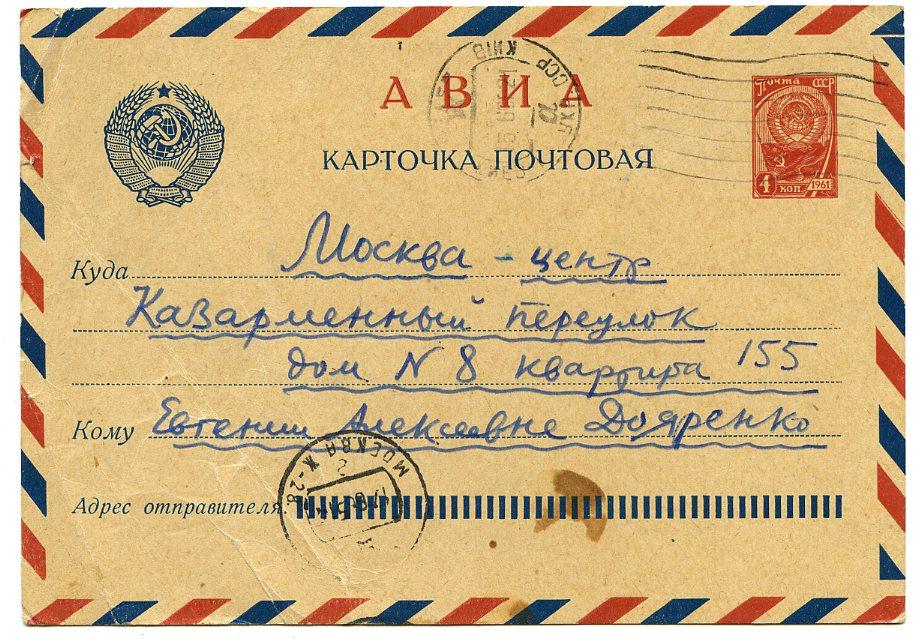 АВИА
КАРТОЧКА ПОЧТОВАЯ
КИЇВ
СССР
Почта СССР
4 коп. 1961
Куда Москва - центр
Казарменный переулок
дом N 8 квартира 155
Кому Евгении Алексеевне Дояренко
МОСКВА К-28
Адрес отправителя: